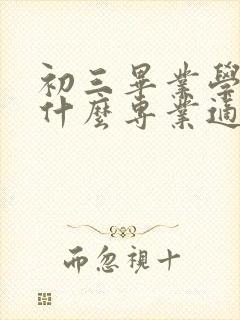 初三畢業學
什麼專業適
而忽視十